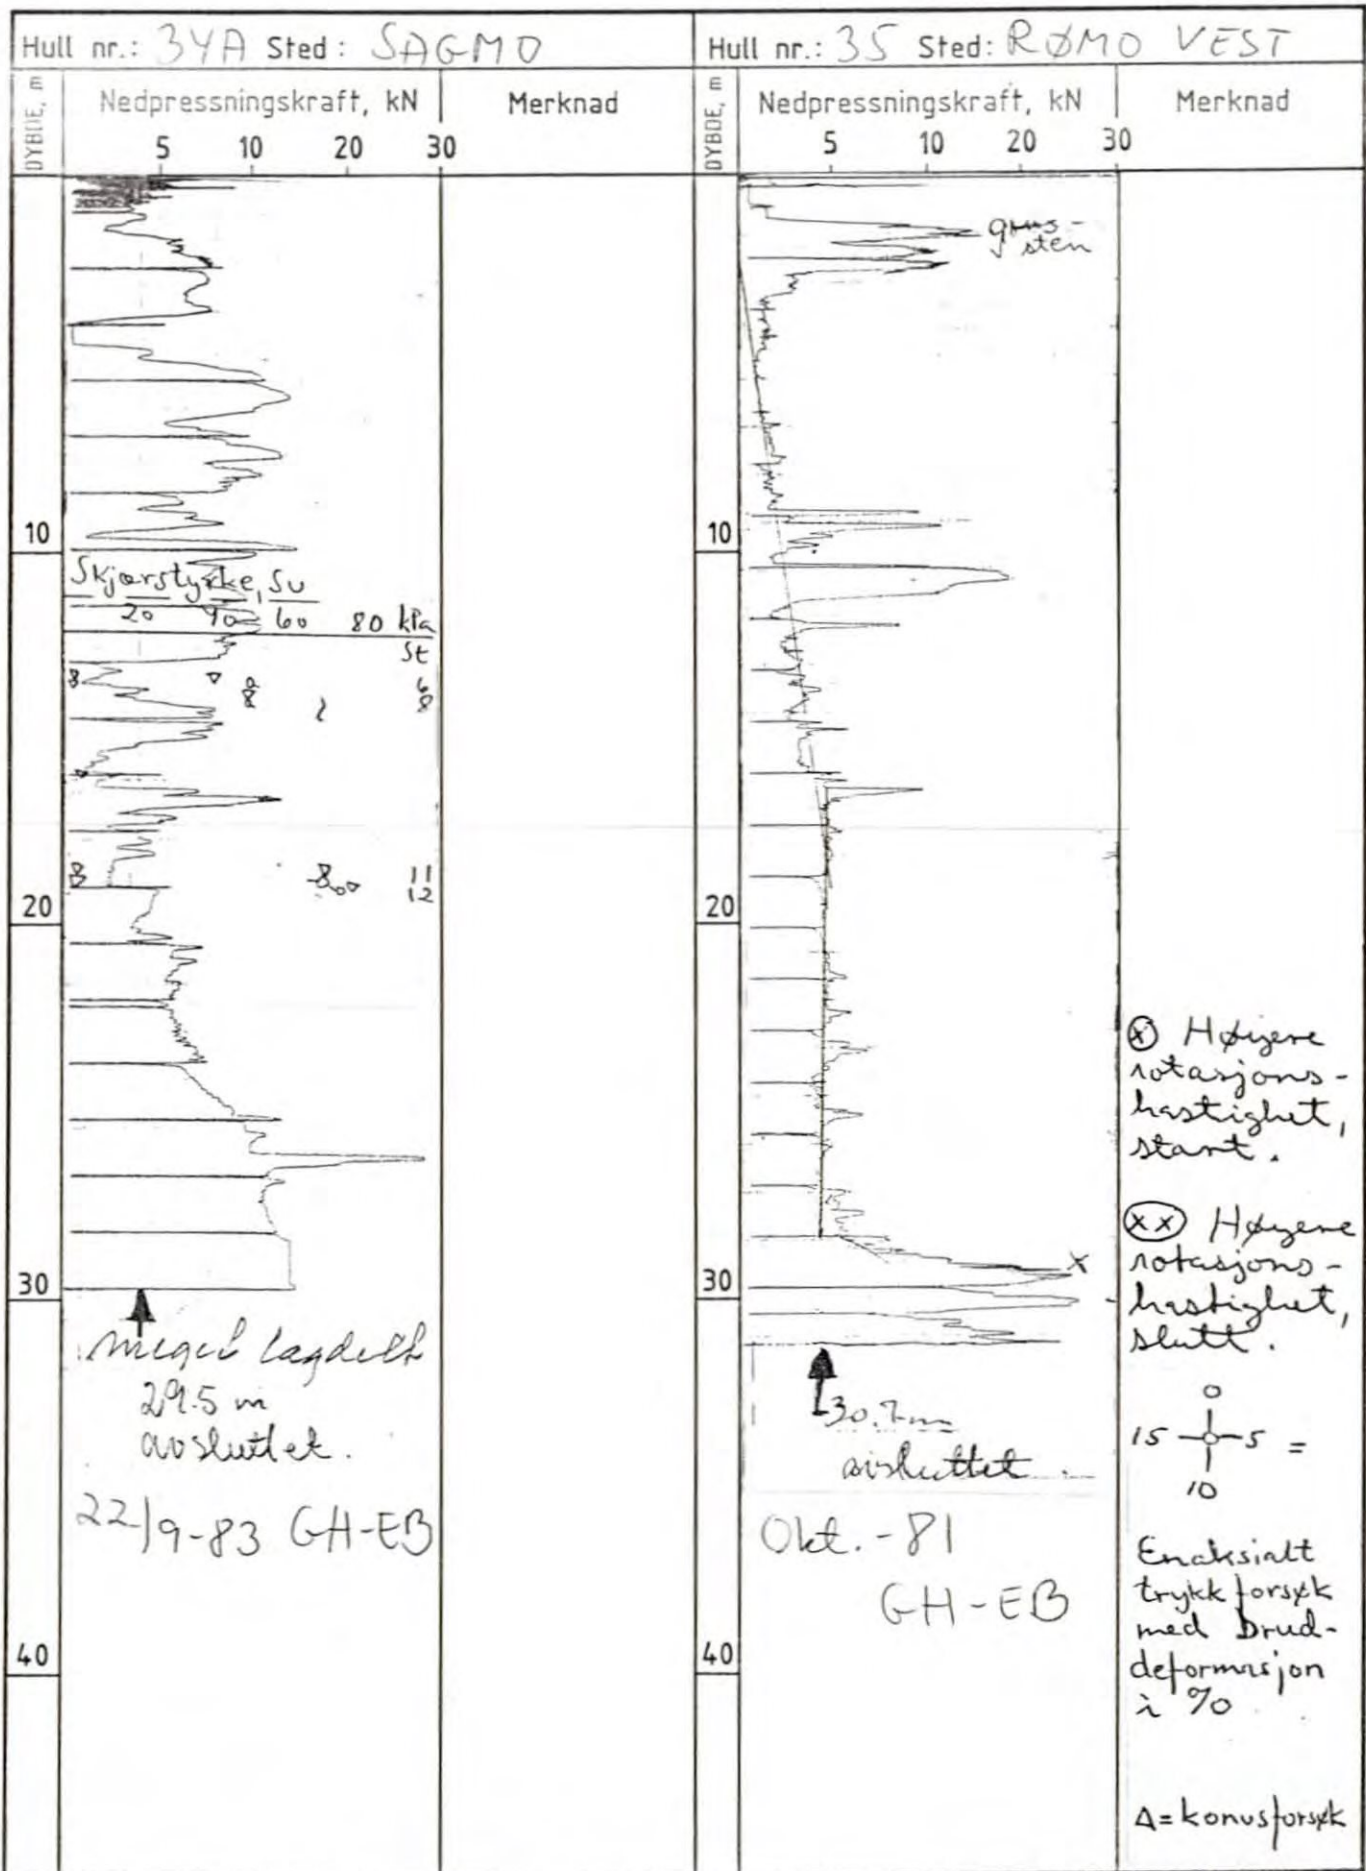 Hull nr.: 34A Sted: SAGMO
DYBDE, m
Nedpressningskraft, kN
Merknad
5 10 20 30
10
Skjærstyrke, Su
20 40 60 80 kPa
St
6
8
11
12
20
30
meget lagdelt
29.5 m
avsluttet.
22/9-83 GH-EB
40
Hull nr.: 35 Sted: RØMO VEST
DYBDE, m
Nedpressningskraft, kN
Merknad
5 10 20 30
grus-
sten
10
20
30
x
30.7 m
avsluttet.
Okt. -81
GH-EB
40
(x) Høyere
rotasjons-
hastighet,
start.
(xx) Høyere
rotasjons-
hastighet,
slutt.
0
15 5 =
10
Enaksialt
trykkforsøk
med brud-
deformasjon
i %
Δ = konusforsøk